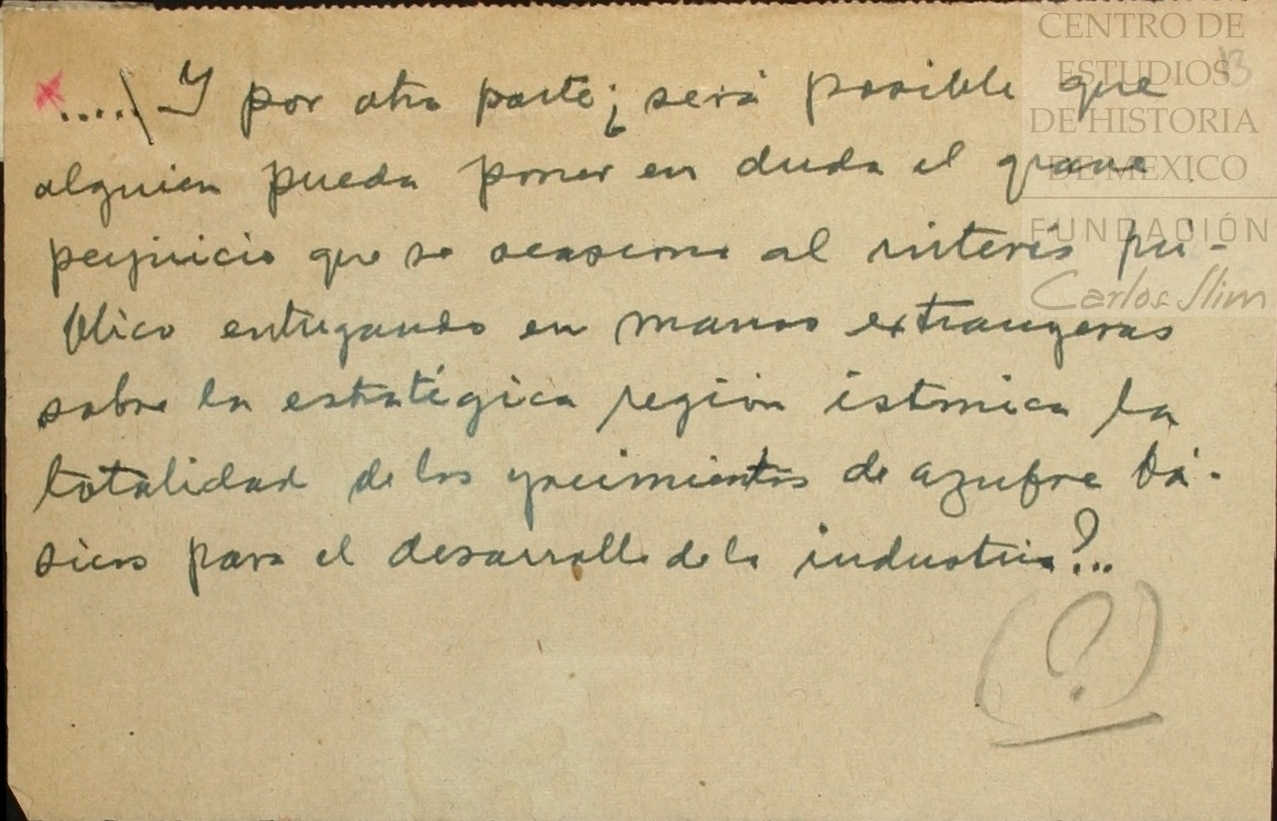 .....\ Y por otra parte ¿ será posible que
alguien pueda poner en duda el grave
perjuicio que se ocasiona al interés pú-
blico entregando en manos extrangeras
sobre la estratégica región istmica la
totalidad de los yacimientos de azufre bá-
sicos para el desarrollo de la industria?..
(?)
CENTRO DE
ESTUDIOS
DE HISTORIA
DE MEXICO
FUNDACIÓN
Carlos Slim